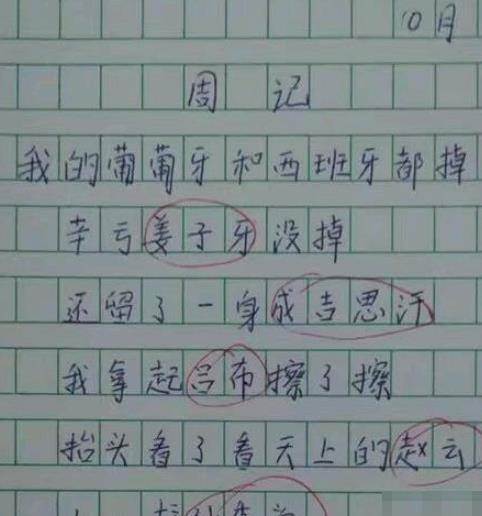 10月
周记
我的葡萄牙和西班牙都掉
辛亏姜子牙没掉
还留了一身成吉思汗
我拿起吕布擦了擦
抬头看了看天上的赵云